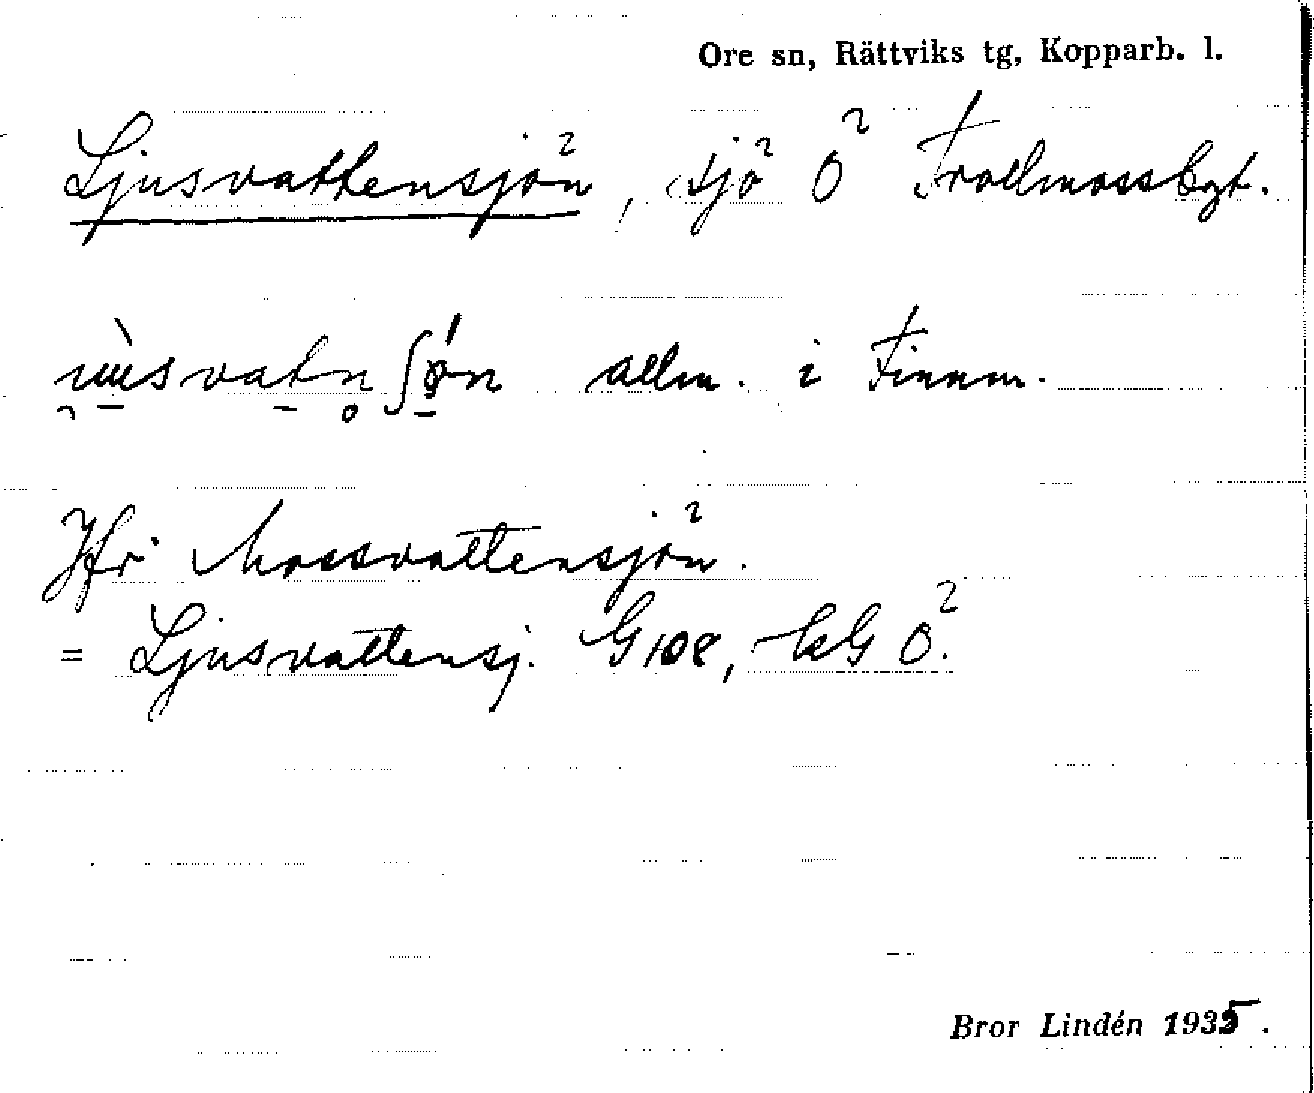 Ore sn, Rättviks tg, Kopparb. l.
Ljusvattensjön, sjö Ö Trollmossbgt.
allm. i Finnm.
Jfr Mossvattensjön.
= Ljusvattensj. G 108, kG Ö.
Bror Lindén 1935.